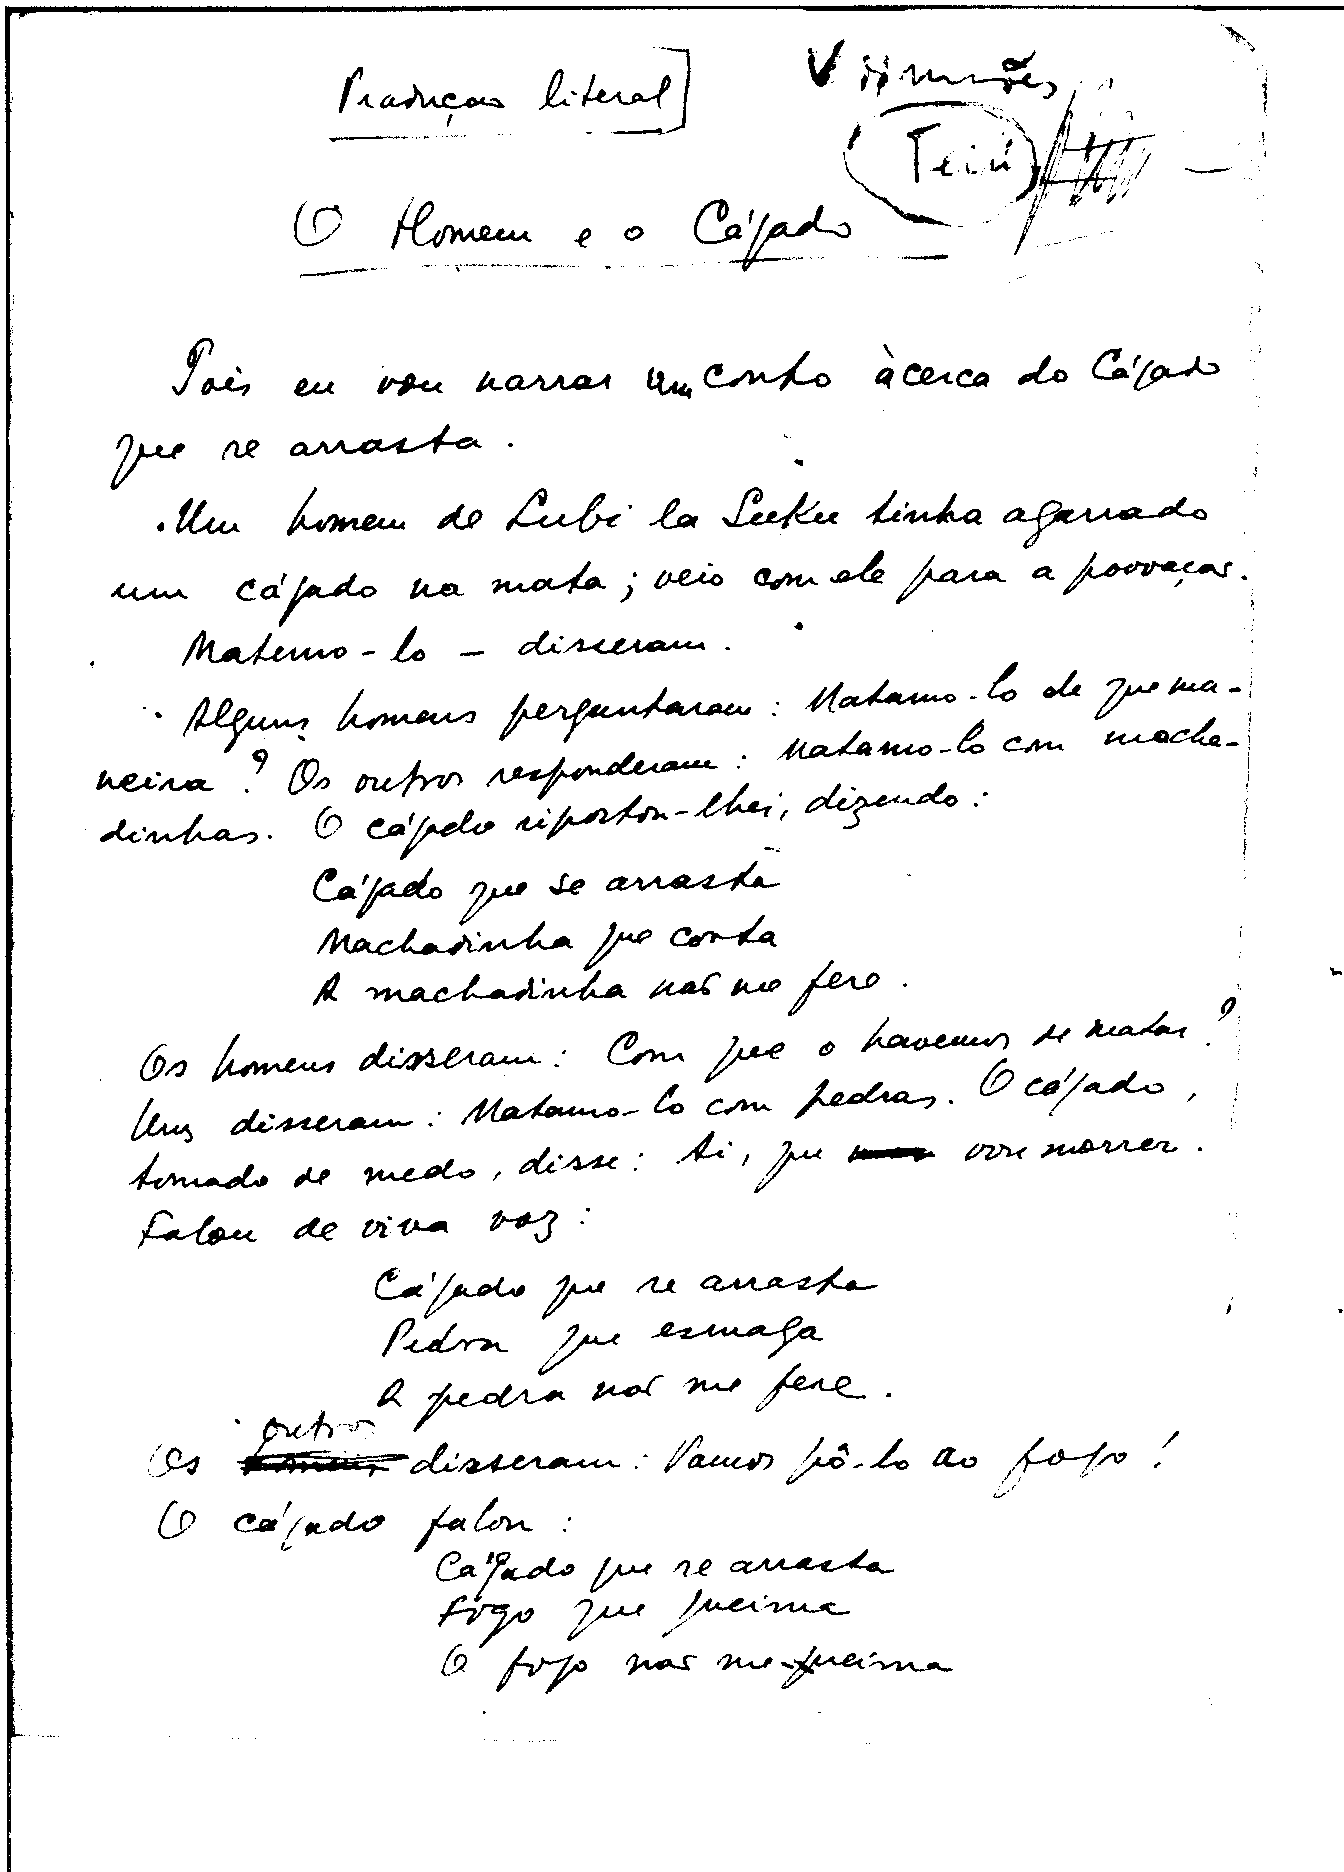 Tradução literal]
Teiú
O Homem e o Cágado
Pois eu vou narrar um conto àcerca do Cágado
que se arrasta.
Um homem de Lubi la Suku tinha agarrado
um cágado na mata; veio com ele para a povoação.
Matemo-lo - disseram.
Alguns homens perguntaram: Matamo-lo de que ma-
neira? Os outros responderam: Matamo-lo com macha-
dinhas. O cágado ripostou-lhes, dizendo:
Cágado que se arrasta
Machadinha que corta
A machadinha não me fere.
Os homens disseram: Com que o havemos de matar?
Uns disseram: Matamo-lo com pedras. O cágado,
tomado de medo, disse: Ai, que vou morrer.
Falou de viva voz:
Cágado que se arrasta
Pedra que esmaga
A pedra não me fere.
Os outros disseram: Vamos pô-lo ao fogo!
O cágado falou:
Cágado que se arrasta
Fogo que queima
O fogo não me queima